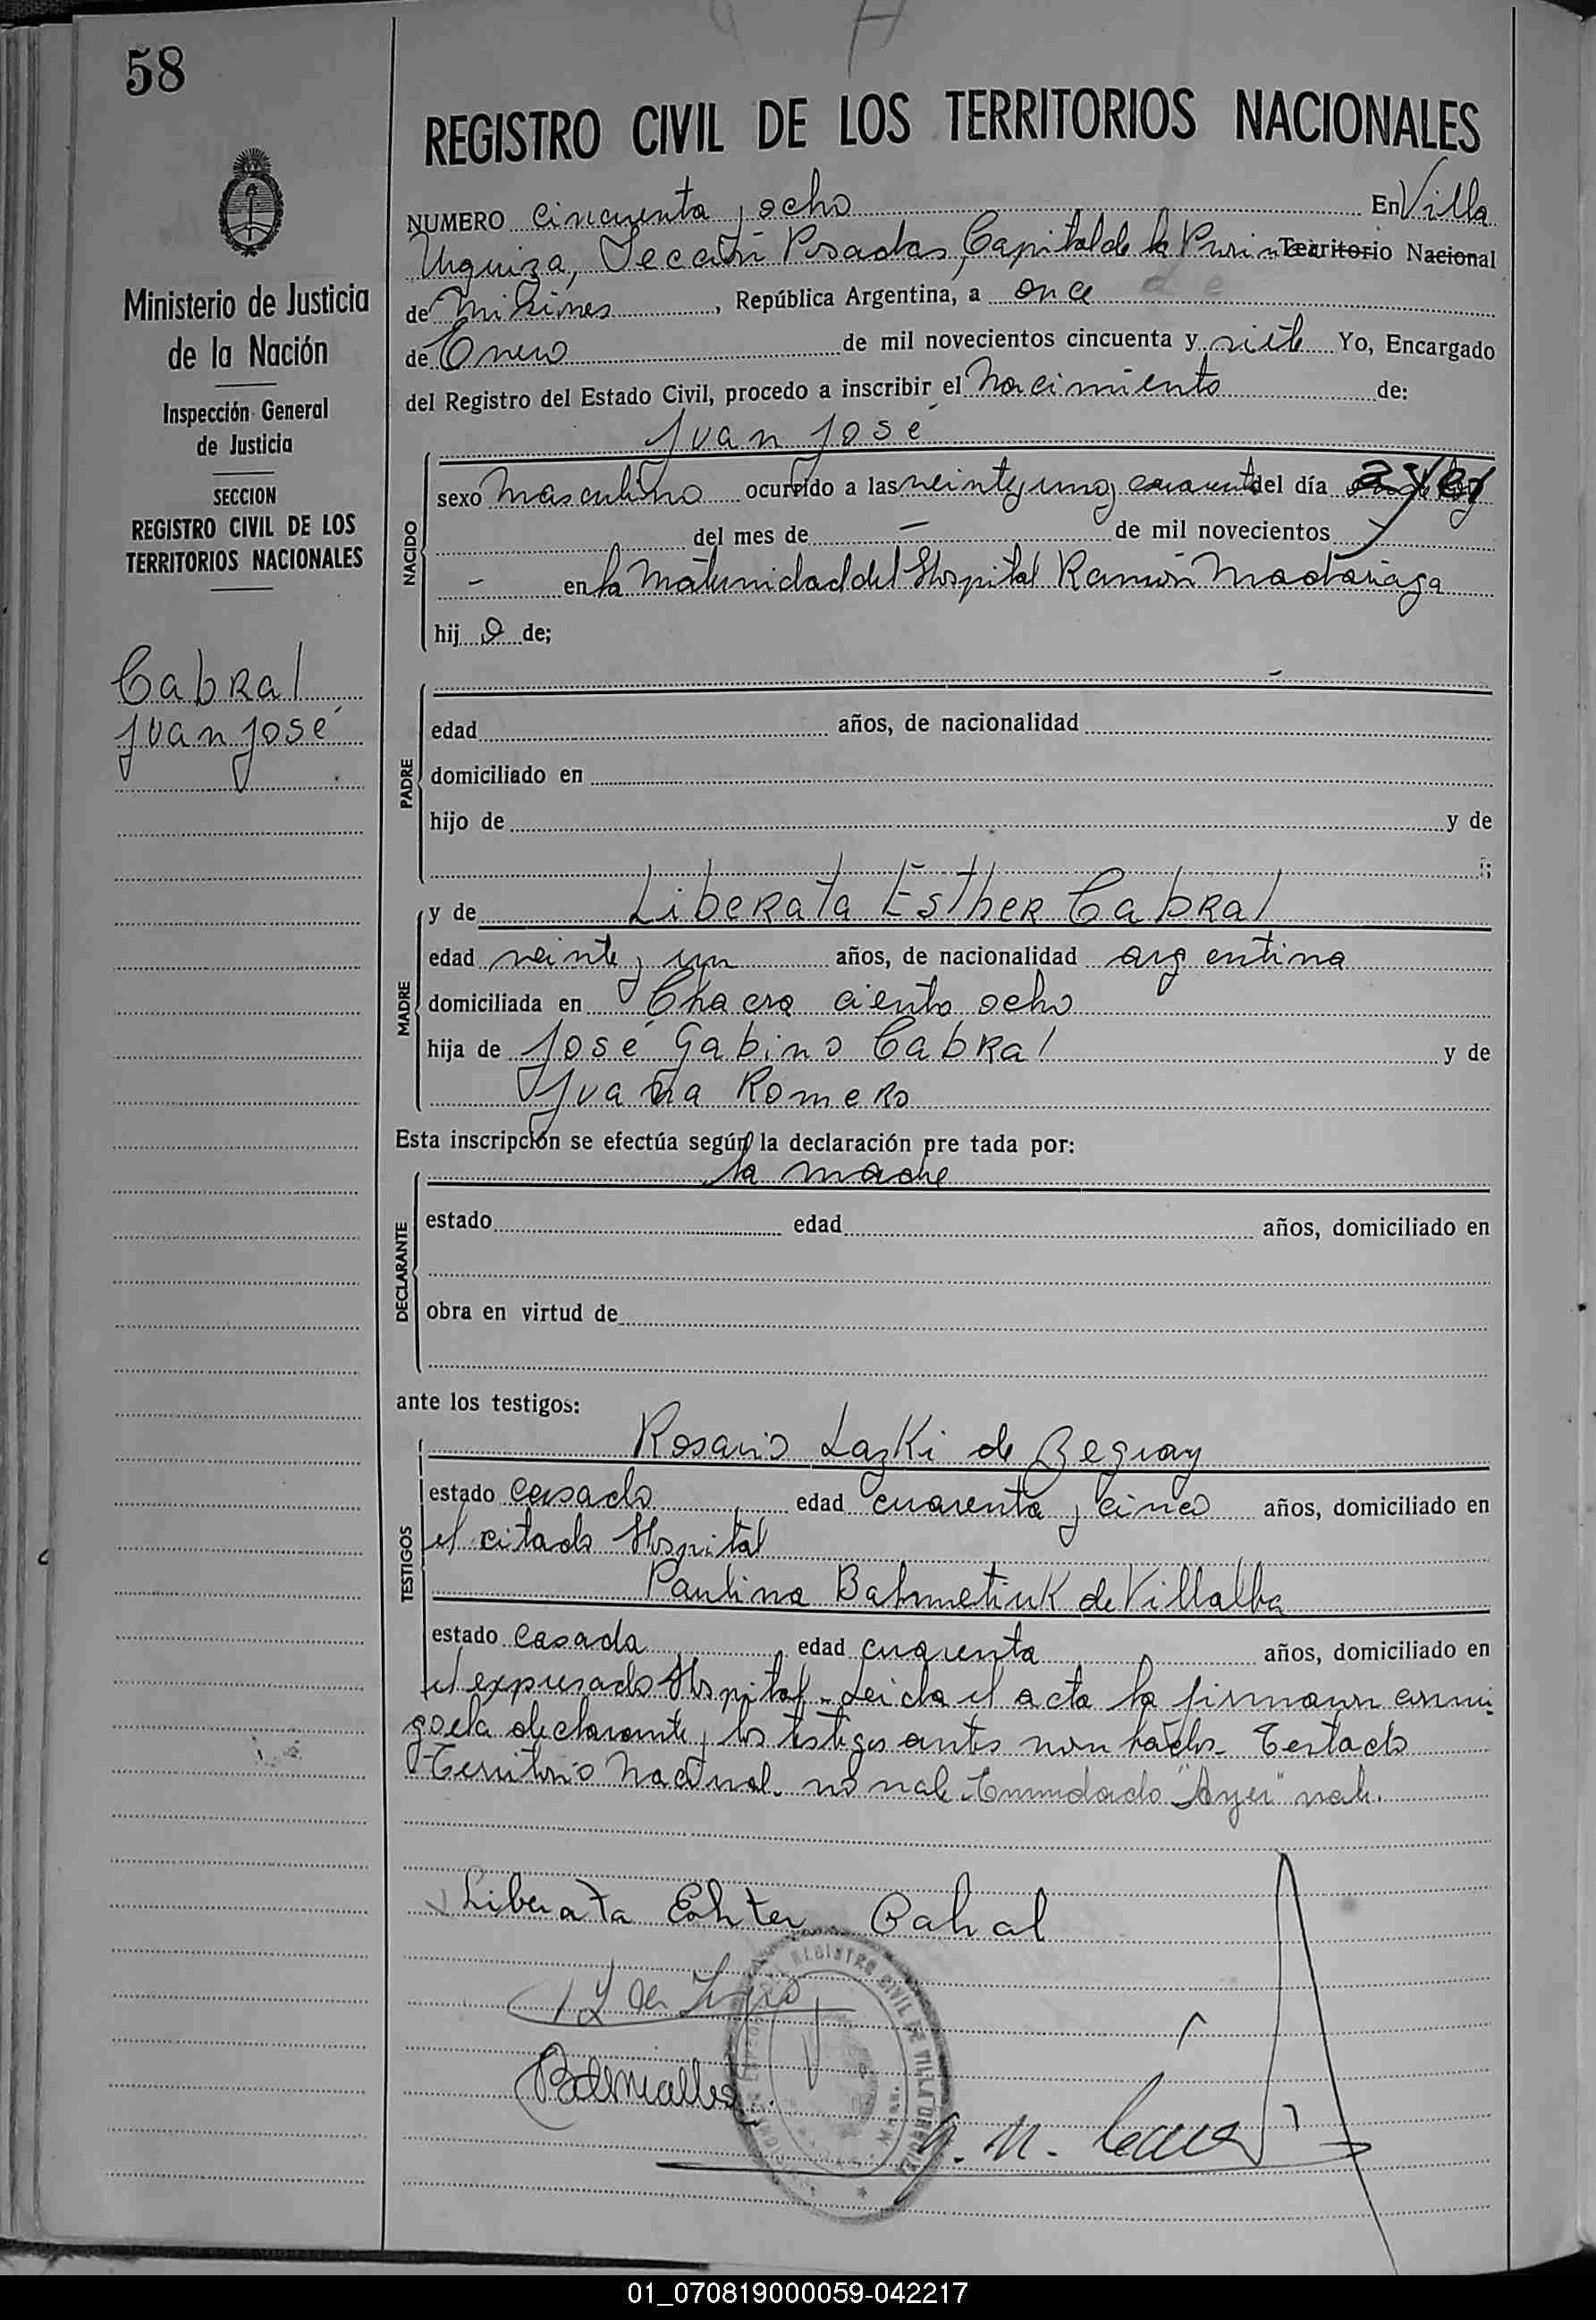 58
REGISTRO CIVIL DE LOS TERRITORIOS NACIONALES
Ministerio de Justicia
de la Nación
Inspección General
de Justicia
SECCION
REGISTRO CIVIL DE LOS
TERRITORIOS NACIONALES
Cabral
Juan José
NUMERO cincuenta y ocho En Villa
Urquiza, Sección Posadas, Capital de la Provincia Territorio Nacional
de Misiones, República Argentina, a once de
de Enero de mil novecientos cincuenta y siete Yo, Encargado
del Registro del Estado Civil, procedo a inscribir el nacimiento de:
Juan José
NACIDO
sexo masculino ocurrido a las veinte y uno y cuarenta del día ayer
del mes de — de mil novecientos
- en la Maternidad del Hospital Ramón Madariaga
hijo de;
PADRE
edad años, de nacionalidad
domiciliado en
hijo de y de
MADRE
y de Liberata Esther Cabral
edad veinte y un años, de nacionalidad argentina
domiciliada en Chacra ciento ocho
hija de José Gabino Cabral y de
Juana Romero
Esta inscripción se efectúa según la declaración pre tada por:
la madre
DECLARANTE
estado edad años, domiciliado en
obra en virtud de
ante los testigos:
TESTIGOS
Rosario Lazki de
estado casado edad cuarenta y cinco años, domiciliado en
el citado Hospital
Paulina de Villalba
estado casada edad cuarenta años, domiciliado en
el expresado Hospital. Leida el acta la firmaron conmi
go la declarante y los testigos antes nombrados. Testado
Territorio Nacional. no vale. Enmendado "Ayer" vale.
Liberata Eshter Cabral
REGISTRO CIVIL DE VILLA URQUIZA
01_070819000059-042217